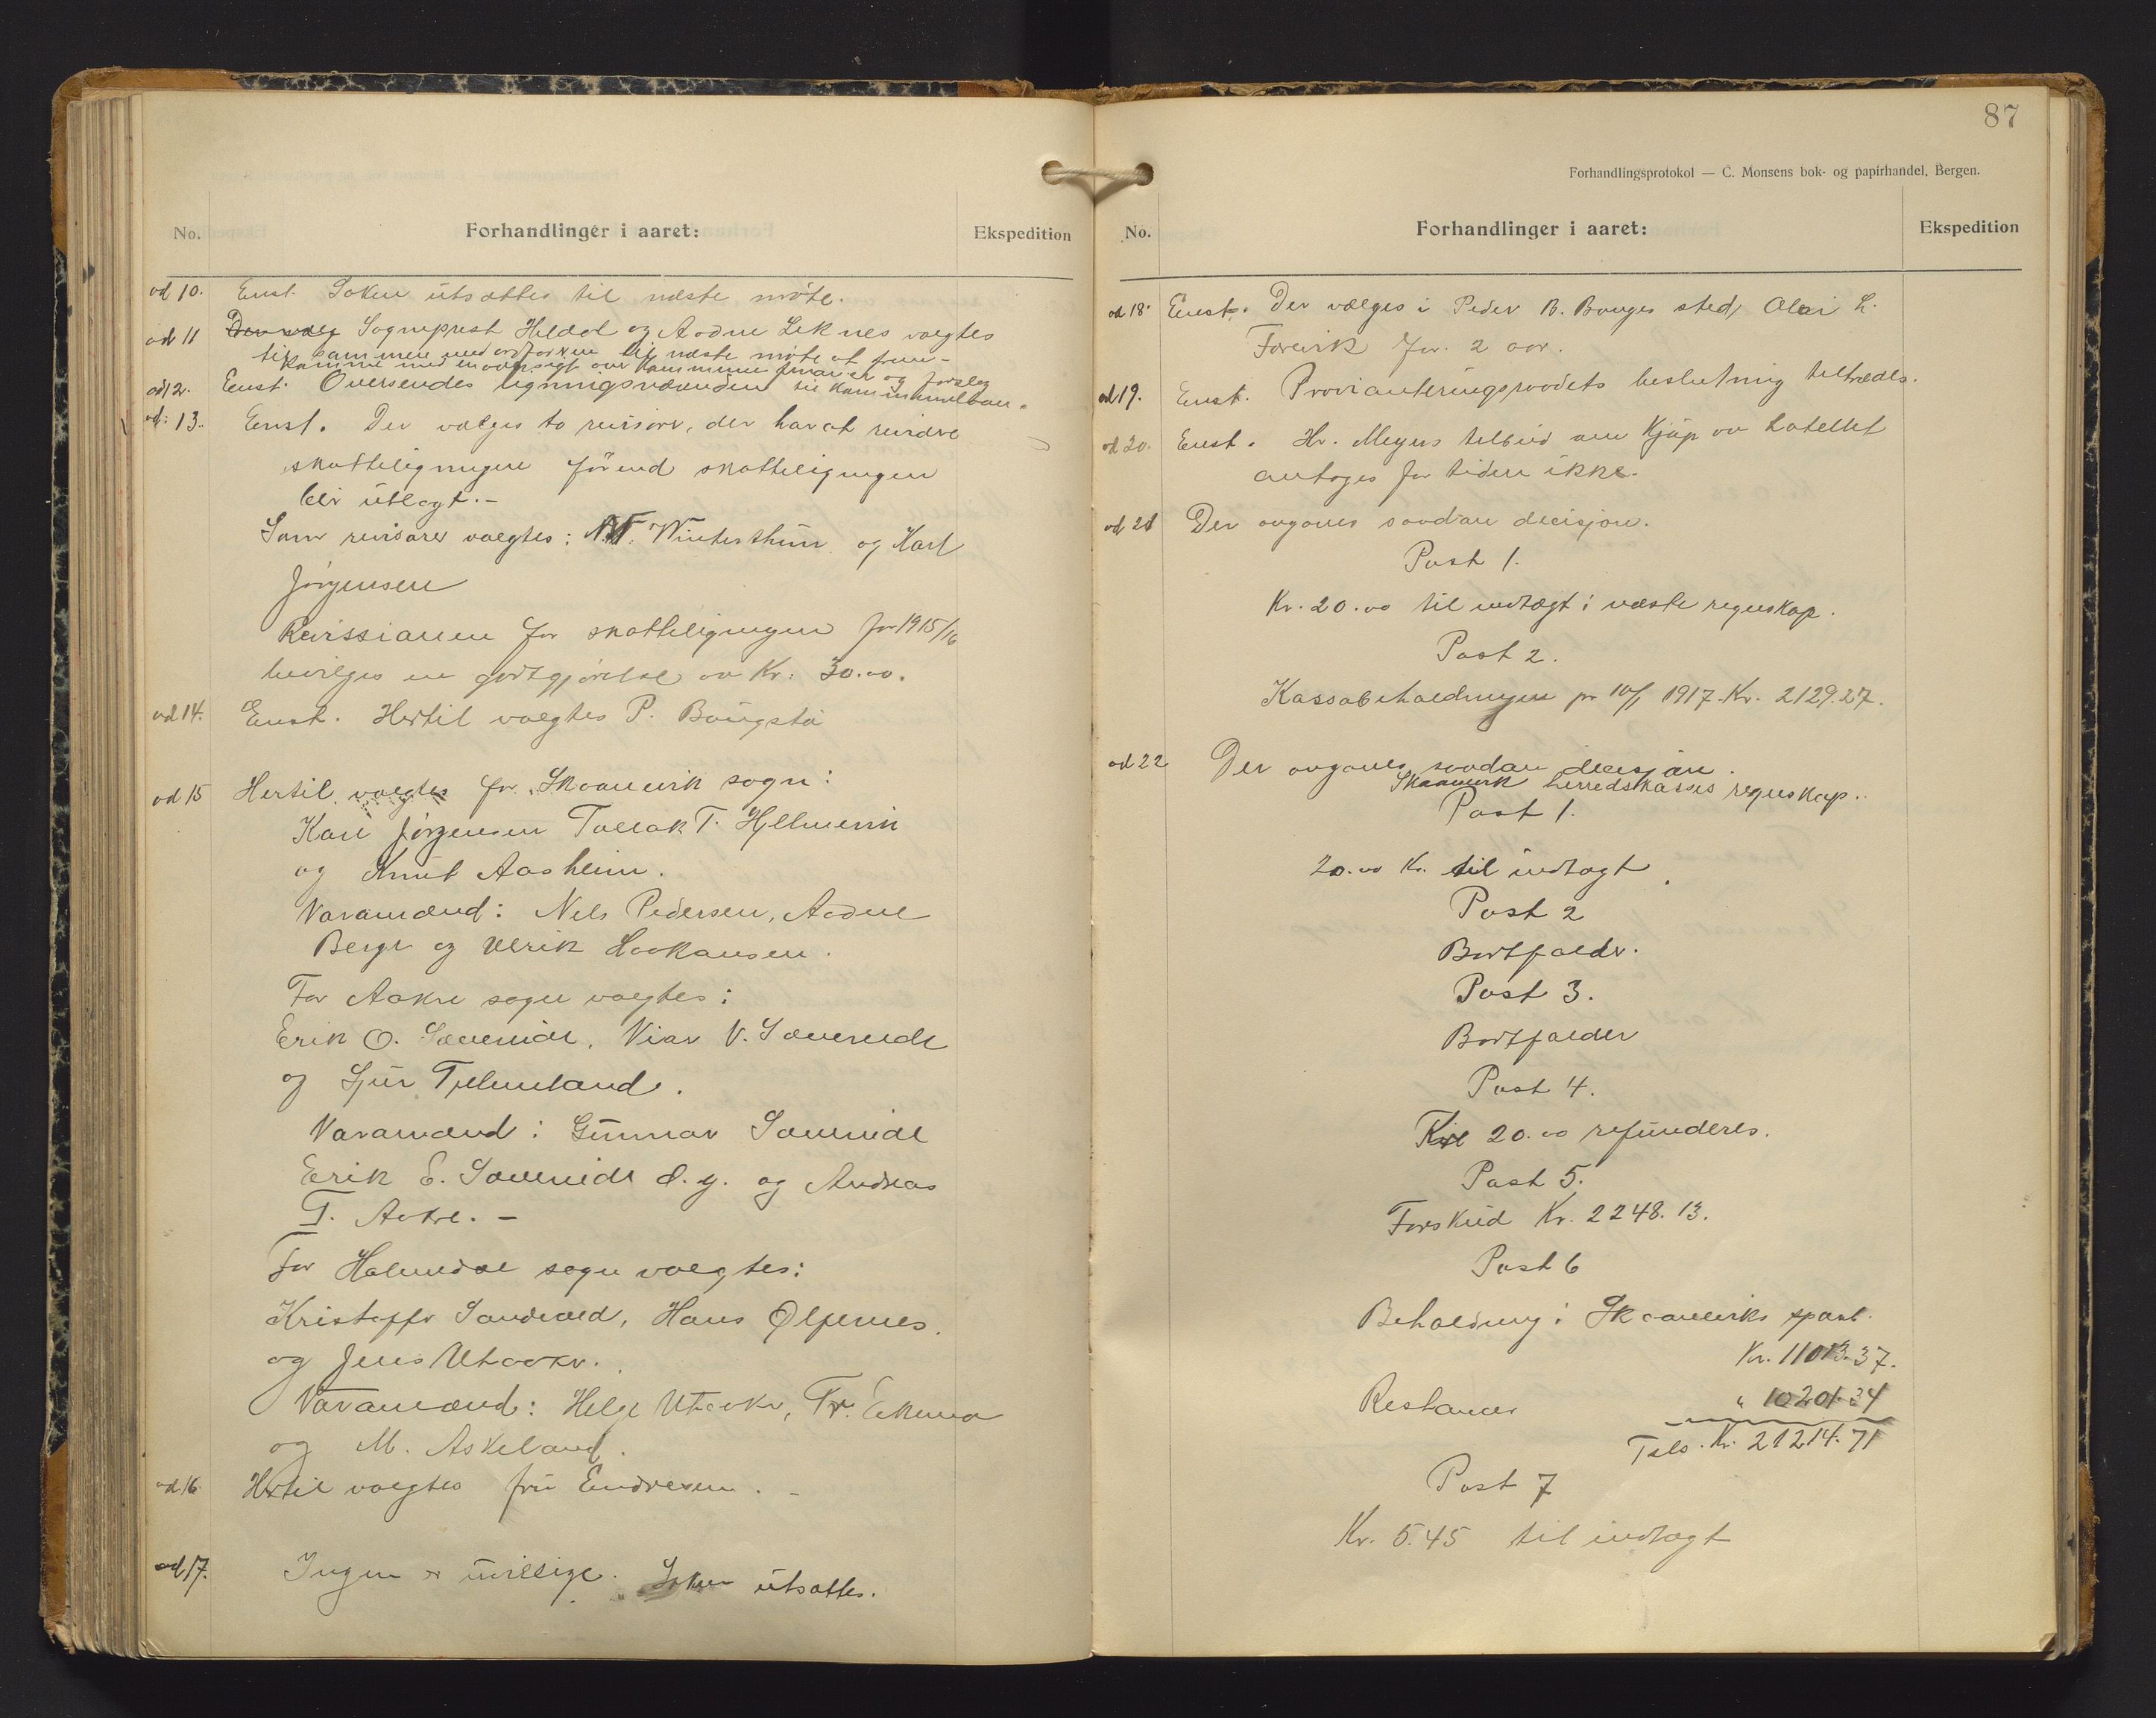 No.
Forhandlinger i aaret:
Ekspedition
ad 10. Enst. Saken utsættes til næste møte.
ad 11 Der valg Sogneprest Heldal og Aadne Leknes valgtes
til sammen med ordføren til næste møte at frem-
komme med en oversigt over kommunens finanser og forslag
til kommunelaan.
ad 12. Enst. Oversendes ligningsnævnden
ad: 13. Enst. Der vælges to reisorer, der har at reivdre
skatteligningen førend skatteligningen
blir utlagt.-
Som revisorer valgtes: N.N. Winterthun og Karl
Jørgensen
Revissionen for skatteligningen for 1915/16
bevilges en godtgjørelse av Kr. 30.00.
ad 14. Enst. Hertil valgtes P. Baugstø
ad 15 Hertil valgtes for Skaanevik sogn:
Karl Jørgensen Tollak T. Hjelmervik
og Knut Aasheim.
Varamænd: Nels Pedersen, Aadne
Berge og Ulrik Haakansen.
For Aakre sogn valgtes:
Erik O. Sævereide, Vier V. Sævereide
og Sjur Tjelmeland.
Varamænd: Gunnar Sævereide
Erik E. Sævereide d.y. og Andreas
T. Aakre. –
For Holmedal sogn valgtes:
Kristoffer Sandvold, Hans Ølfernes
og Jens Utaaker.
Varamænd: Helge Utaaker, Fr. Ekemo
og M. Askeland.
ad 16. Hertil valgtes fru Endresen. –
ad 17. Ingen er uvillige. Saken utsattes.
87
Forhandlingsprotokol — C. Monsens bok- og papirhandel, Bergen.
No.
Forhandlinger i aaret:
Ekspedition
ad 18. Enst. Der vælges i Peder B. Bauges sted, Olai L.
Farevik for 2 aar.
ad 19. Enst. Provianteringsraadets beslutning tiltrædes.
ad 20. Enst. Hr. Meyers tilbud om Kjøp av hotellet
antoges for tiden ikke.
ad 21 Der avgaves saadan decisjon.
Post 1.
Kr. 20.00 til indtægt i næste regnskap.
Post 2.
Kassabeholdningen pr 10/1 1917. Kr. 2129.27.
ad 22 Der avgaves saadan decisjon.
Skaanevik herredskasses regnskap.
Post 1.
20.00 Kr. til indtægt.
Post 2
Bortfalder.
Post 3.
Bortfalder
Post 4.
Kr 20.00 refunderes.
Post 5.
Forskud Kr. 2248.13.
Post 6
Beholdning i Skaaneviks sparb.
Kr. 11013.37.
Restancer " 10201.34
Tils. Kr. 21214.71
Post 7
Kr. 5.45 til indtægt